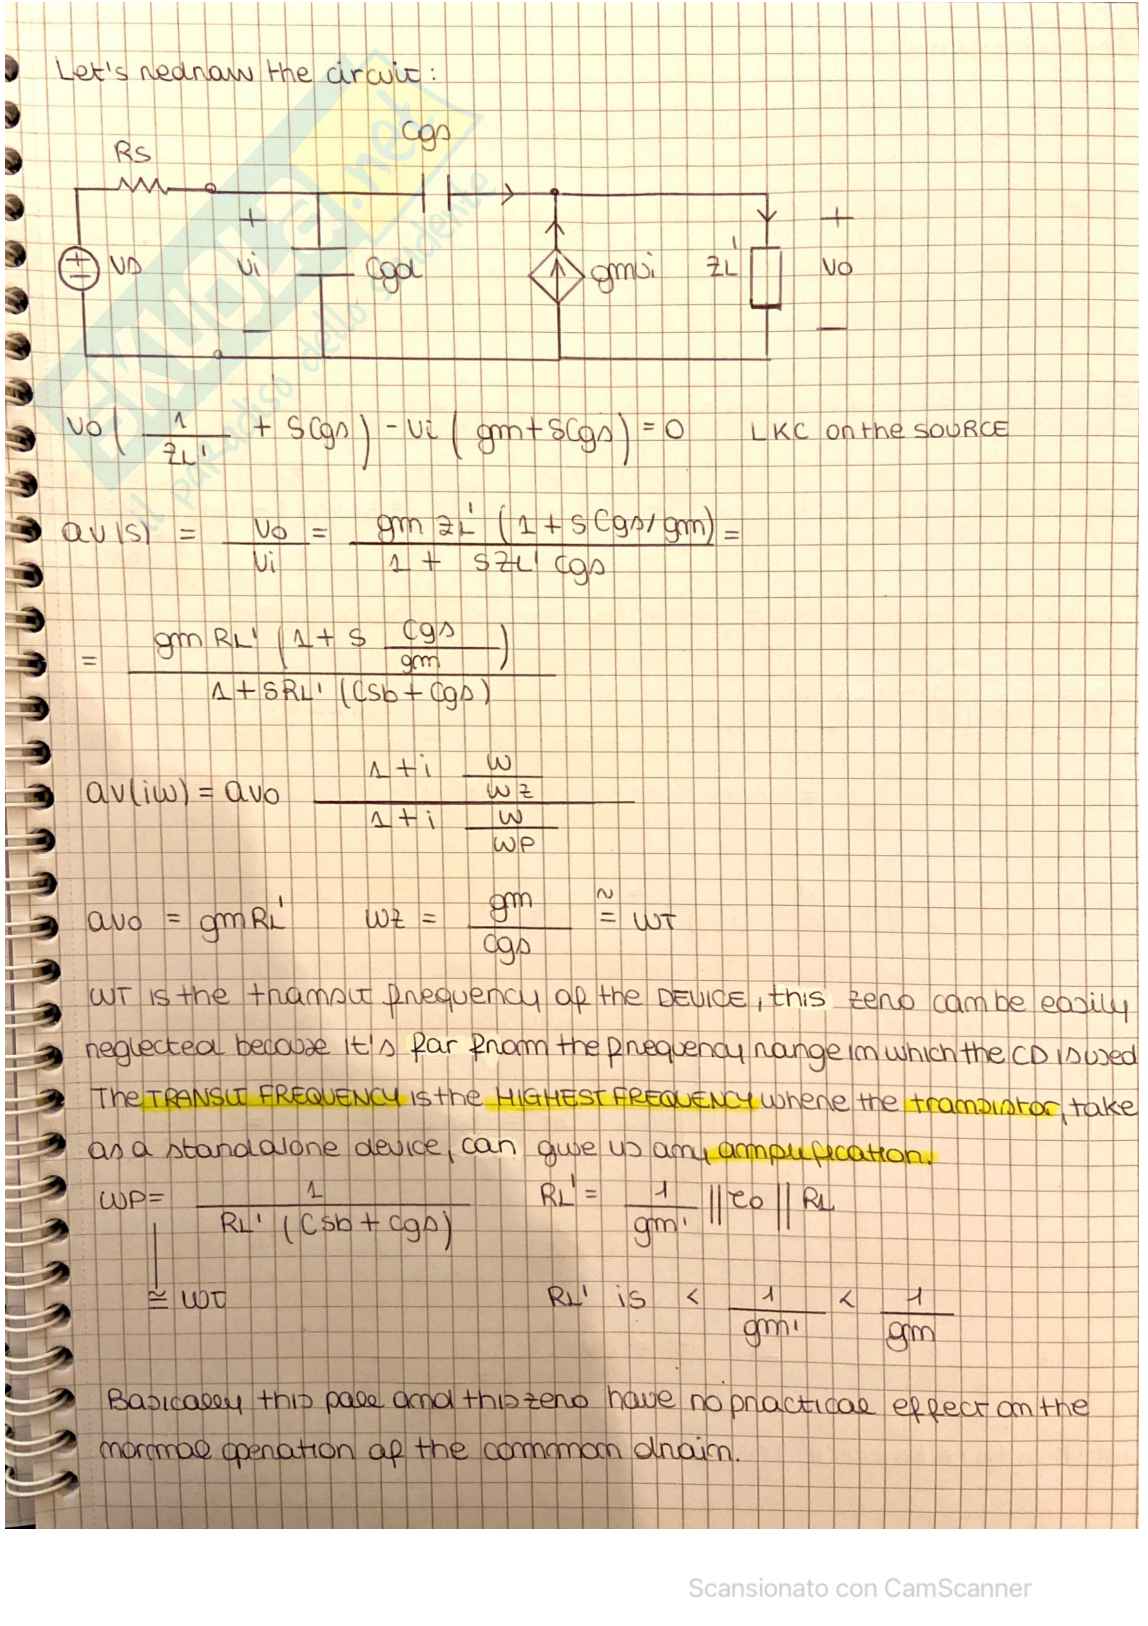 Let's redraw the circuit:
Cgs
Rs
+
+
vs
vi
Cgd
gmvi
ZL'
vo
−
−
vo ( 1/ZL' + sCgs ) - vi ( gm + sCgs ) = 0   LKC on the SOURCE
av(s) = vo/vi = gm ZL' (1 + s Cgs/gm) / 1 + sZL' Cgs =
= gm RL' (1 + s Cgs/gm) / 1 + sRL' (Csb + Cgs)
av(iω) = avo 1 + i ω/ωz / 1 + i ω/ωp
avo = gm RL'   ωz = gm/Cgs ≅ ωT
ωT is the transit frequency of the DEVICE, this zero can be easily
neglected because it's far from the frequency range in which the CD is used
The TRANSIT FREQUENCY is the HIGHEST FREQUENCY where the transistor, take
as a standalone device, can give us any amplification.
ωp = 1 / RL' (Csb + Cgs)   RL' = 1/gm' || ro || RL
≅ ωT   RL' is < 1/gm' < 1/gm
Basically this pole and this zero have no practical effect on the
normal operation of the common drain.
SKUOLA.net
il paradiso dello studente
Scansionato con CamScanner